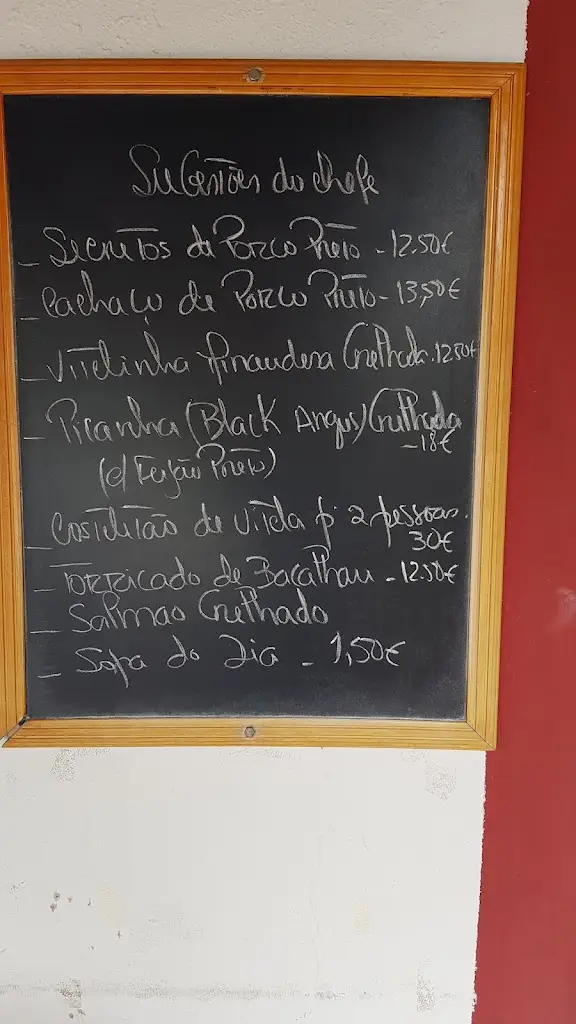 Sugestões do chefe
- Secretos de Porco Preto - 12.50€
- Cachaço de Porco Preto - 13,50€
- Vitelinha Grelhada . 12.50€
- Picanha (Black Angus) Grelhada
- 18€
(c/ Feijão Preto)
- Costeletão de Vitela p/ 2 pessoas.
30€
- Torricado de Bacalhau - 12.50€
- Salmão Grelhado
- Sopa do Dia - 1,50€